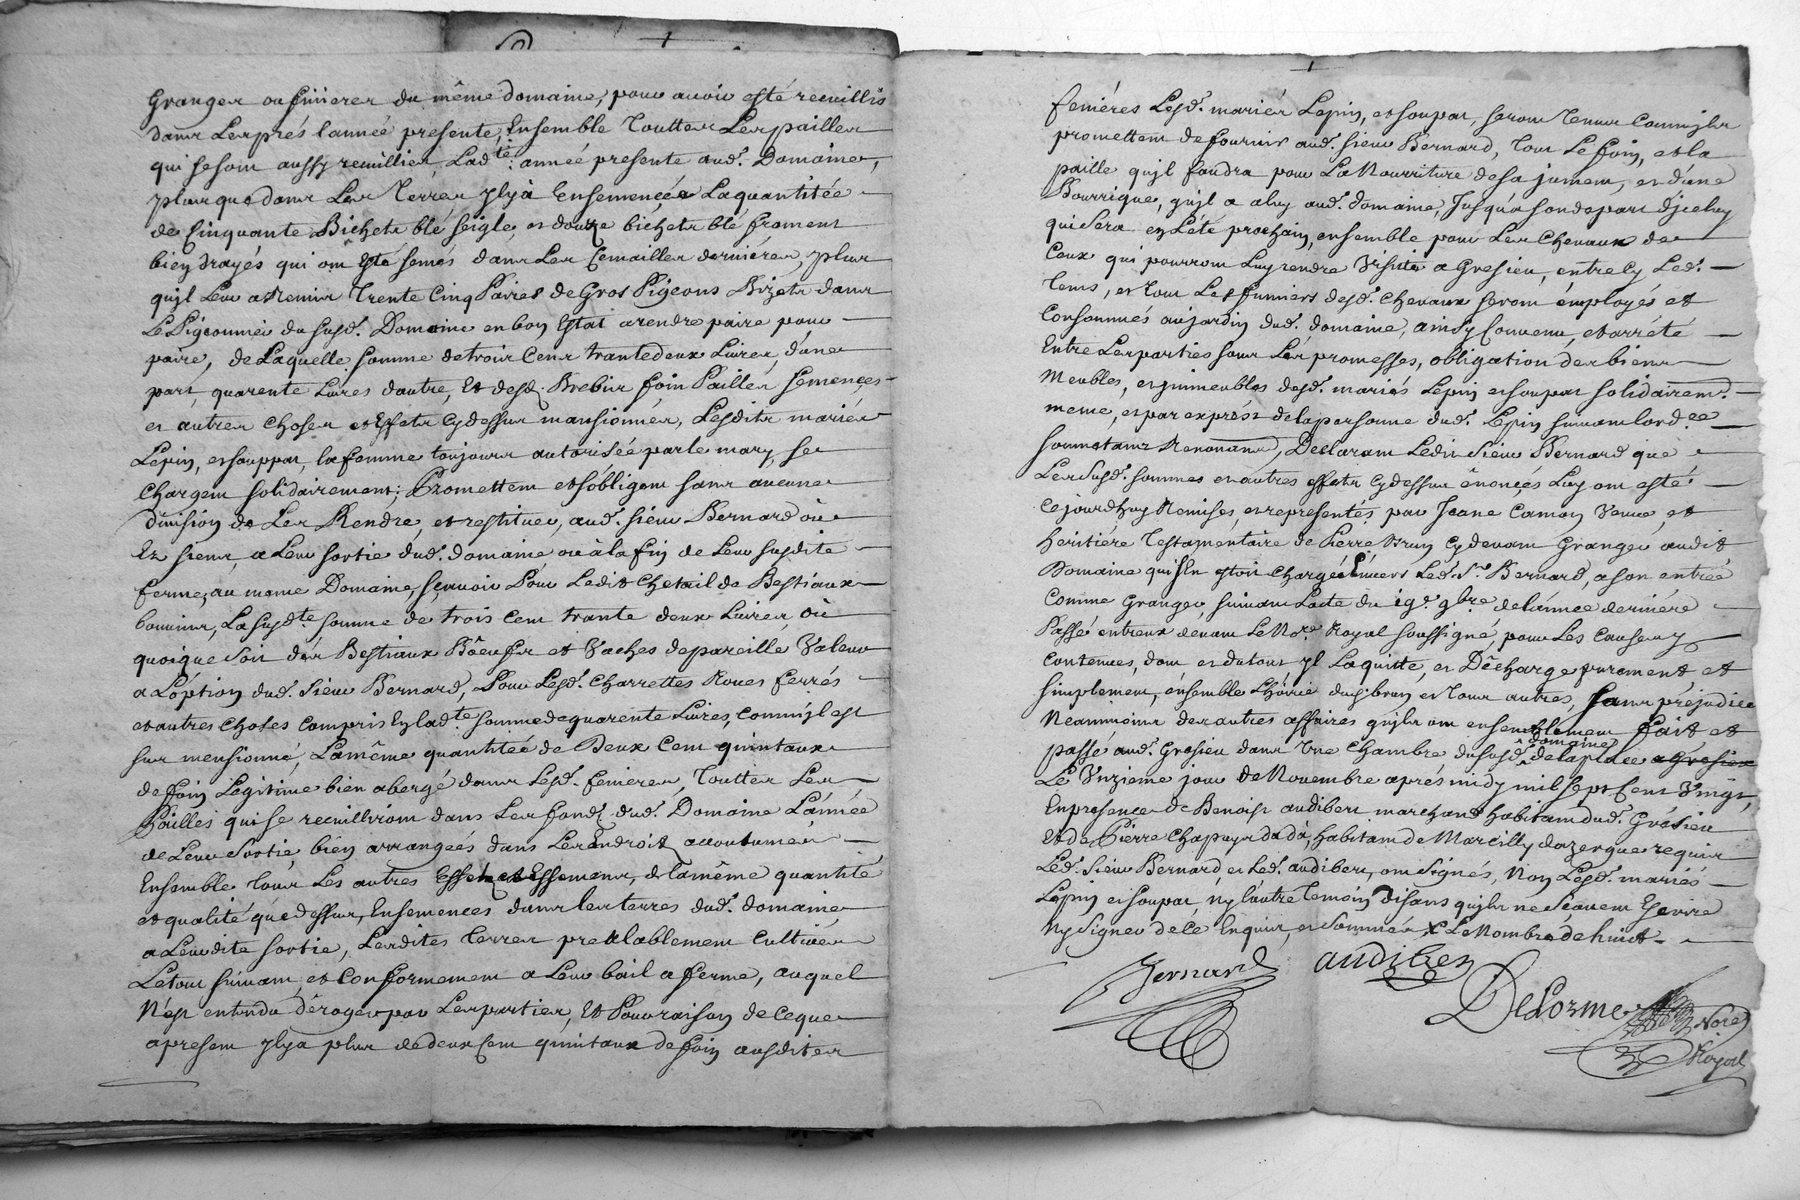 Granger ou finierer du même domaine, pour avoir esté recuillis
dans Les prés lannée presente, Ensemble touttes Les pailles
qui se sont aussy recuillies, Ladte. année presente aud. Domaine,
plus que dans Les Terres jl y à Ensemencée La quantitée
de Cinquante Bichets blé seigle, et douze bichets blé froment
bien drayés qui ont Eté semés dans Les Semailles dernières, plus
qujl Leur a Remis Trente Cinq Paires de Gros Pigeons Bizets dans
Le Pigeonnier du susd. Domaine en bon Estat a rendre paire pour
paire, de Laquelle somme de trois Cens trante deux Livres, d'une
part, quarente Livres dautre, Et desd. Brebis foin Pailles semences
et autres choses et Effets Cydessus mansionnés, Lesdits mariés
Lépin, et souppat, la femme toujours autorisée par le mary, se
chargent solidairement; Promettent et s'obligent sans aucune
division de Les Rendre, et restituer, aud. sieur Bernard où
Es siens, a Leur sortie dud. domaine où à la fin de Leur susdite
ferme, au meme Domaine, sçavoir Pour Ledit Chetail de Bestiaux
bovins, La susdte somme de trois Cent trante deux Livres, où
quoique soit des Bestiaux Bœufs et Vaches de pareille Valeur
a L'option dud. Sieur Bernard, Pour Lesd. Charrettes Roues ferrés
et autres choses Compris En ladte somme de quarente Livres, Comm'jl est
sus mensionné, La même quantitée de Deux Cent quintaux
de foin Légitime bien abergé dans Lesd. fenieres, Touttes Les
Pailles qui se recuilliront dans Les fonds dud. Domaine L'année
de Leur Sortie, bien arrangeés dans Les Endroits accoutumés
Ensemble tous Les autres Essements, de la même quantité
et qualité que dessus, Ensemences dans les terres dud. domaine
a Leurdite sortie, Lesdites Terres prealablement Cultivées
Le tout suivant, et Conformement a Leur bail a ferme, auquel
N'est entendu déroger par Les parties, Et Pour raison de ce que
a present jl y a plus de deux Cent quintaux de foin ausdites
feniéres Lesd. mariés Lepin, et soupat, seront Tenus Comm'jls
promettent de fournir aud. sieur Bernard, tout Le foin, et la
paille qujl faudra pour La Nourriture de sa jument, et d'une
Bourrique, qujl a aluy aud. domaine, Jusqu'a son depart d'jceluy
qui sera en L'été prochain, ensemble pour Les Chevaux de
Ceux qui pourront Luy rendre Visitte a Gresieu, entre Cy Led.
tems, et tout Les fumiers desd. Chevaux seront émployés et
Consommés au jardin dud. domaine, ainsy Convenu, et arrété
Entre Les parties sous Les promesses, obligation des biens
Meubles, et jmmeubles desd. mariés Lepin et soupat solidairemt.
meme, et par exprèst de la personne dud. Lepin suivant lordce
soumetans Renonans, Declarant Ledit Sieur Bernard que
Les susd. sommes et autres effets Cy dessus énoncés Luy ont esté
Cejourdhuy Remises, et representés par Jeane Camon Veuve, et
héritiére Testamentaire de Pierre Brun Cydevant Granger audit
Domaine qui s'En estoit chargée Envers Led. Sr. Bernard, a son entrée
Comme Granger, suivant Lacte du 19e. 9bre de l'année derniére
Passé entreux devant Le Nore. Royal soussigné, pour Les Causes y
Contenues, dont et du tout jl Laquitte, et Décharge purement et
simplement, énsemble L'hoirie dud. brun et tous autres, sans prejudice
Neanmoins des autres affaires qujls ont ensemblement Fait et
passé aud. Gresieu dans Une Chambre, du susd. domaine de la place a Grésieu
Le Unzieme jour de Novembre aprés midy mil sept Cent Vingt,
En presence de Benoist audibert marchand habitant dud. Grésieu
et de Pierre Chapuys dudit, habitant de Marcilly dazergue requis
Led. Sieur Bernard et Led. audibert, ont Signés, Non Lesd. mariés
Lepin et soupat, ny l'autre temoin disans qujls ne scavent Escrire
Ny Signer de Ce Enquis, et Sommés Le Nombre de huict
Bernard
audibert
DeLorme
Nore
Royal